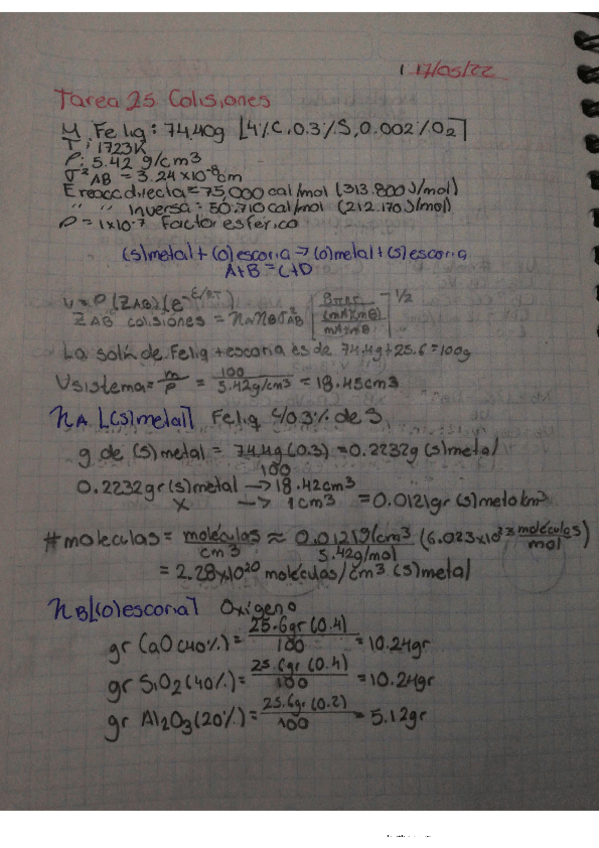 1 17/05/22
Tarea 25 Colisiones
M Fe liq: 74.40g [4%C, 0.3%S, 0.002%O2]
T: 1723K
ρ: 5.42 g/cm3
σ²AB = 3.24x10⁻⁸cm
E reacc directa = 75,000 cal/mol (313.800 J/mol)
" " Inversa = 50.710 cal/mol (212.170 J/mol)
ρ = 1x10⁻⁷ Factor esférico
(S)metal + (O)escoria → (O)metal + (S)escoria
A+B = C+D
v = P (ZAB) (e^-E/RT)
ZAB colisiones = nA nB σ²AB [8πRT / (mAxmB) / mA+mB]^1/2
La soln de Fe liq + escoria es de 74.4g + 25.6 = 100g
Vsistema = m/ρ = 100/5.42g/cm3 = 18.45cm3
nA [(S)metal] Fe liq c/0.3% de S
g de (S)metal = 74.4g (0.3)/100 = 0.2232g (s)metal
0.2232gr (s)metal → 18.42cm3
x → 1cm3 = 0.0121gr (s)metal cm3
# moleculas = moléculas/cm3 ≈ 0.0121g/cm3 / 5.42g/mol (6.023x10²³ moléculas/mol)
= 2.28x10²⁰ moléculas/cm3 (s)metal
nB [(O)escoria] Oxígeno
gr CaO (40%) = 25.6gr (0.4)/100 = 10.24gr
gr SiO2 (40%) = 25.6gr (0.4)/100 = 10.24gr
gr Al2O3 (20%) = 25.6gr (0.2)/100 = 5.12gr